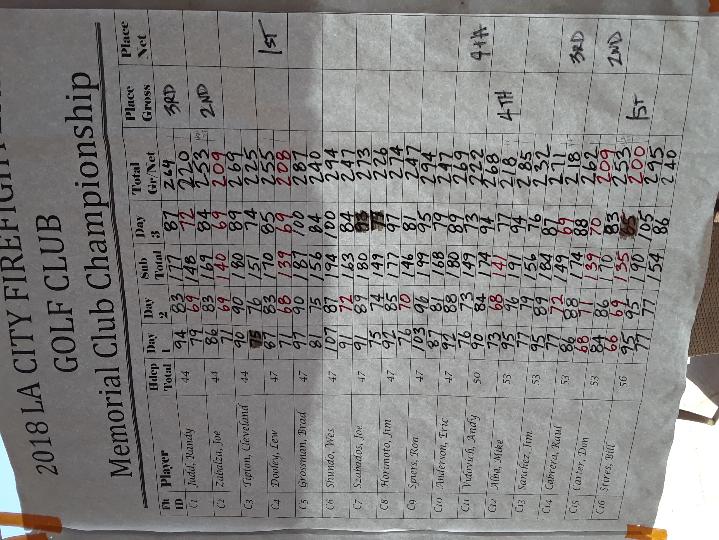 2018 LA CITY FIREFIGHTER
GOLF CLUB
Memorial Club Championship
Flt ID Player Hdcp Total Day 1 Day 2 Sub Total Day 3 Total Gr/Net Place Gross Place Net
C1 Judd, Randy 44 94 83 177 87 264 3RD
79 69 148 72 220
C2 Zabalza, Joe 44 86 83 169 84 253 2ND
71 69 140 69 209
C3 Tipton, Cleveland 44 90 90 180 89 269
75 76 151 74 225
C4 Dooley, Lew 47 87 83 170 85 255 1ST
71 68 139 69 208
C5 Grossman, Brad 47 97 90 187 100 287
81 75 156 84 240
C6 Shundo, Wes 47 107 87 194 100 294
91 72 163 84 247
C7 Szabados, Joe 47 91 89 180 93 273
75 74 149 77 226
C8 Horimoto, Jim 47 92 85 177 97 274
76 70 146 81 247
C9 Spurs, Ron 47 103 96 199 95 294
87 81 168 79 247
C10 Anderson, Eric 47 92 88 180 89 269
76 73 149 73 222
C11 Andy 50 90 84 174 94 268 4TH 4TH
73 68 141 77 218
C12 Alba, Mike 53 95 96 191 94 285
77 79 156 76 232
C13 Sanchez, Jim 53 95 89 184 87 271
77 72 149 69 218
C14 Cabrera, Raul 53 86 88 174 88 262 3RD
68 71 139 70 209
C15 Carter, Don 53 84 86 170 83 253 1ST 2ND
66 69 135 65 200
C16 Stores, Bill 56 95 95 190 105 295
77 77 154 86 240